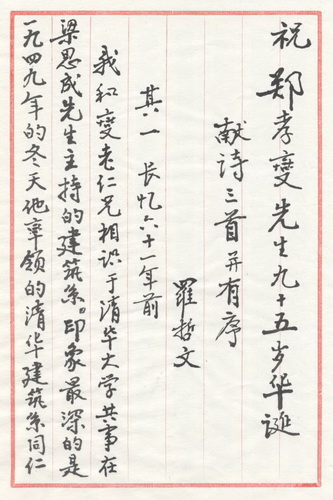 祝
郑孝燮先生九十五岁华诞
献诗三首并有序
羅哲文
其一 长忆六十一年前
我和燮老仁兄相识于清华大学共事在
梁思成先生主持的建筑系。印象最深的是
一九四九年的冬天他率领的清华建筑系同仁